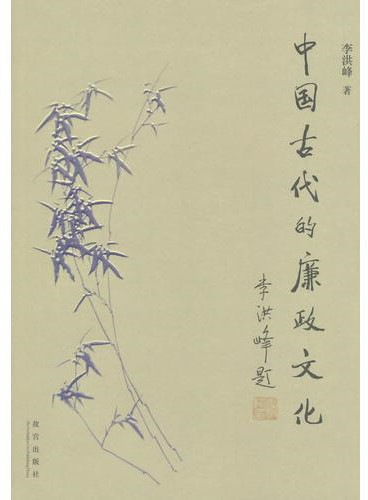 李洪峰 著
中国古代的廉政文化
李洪峰题
故宫出版社